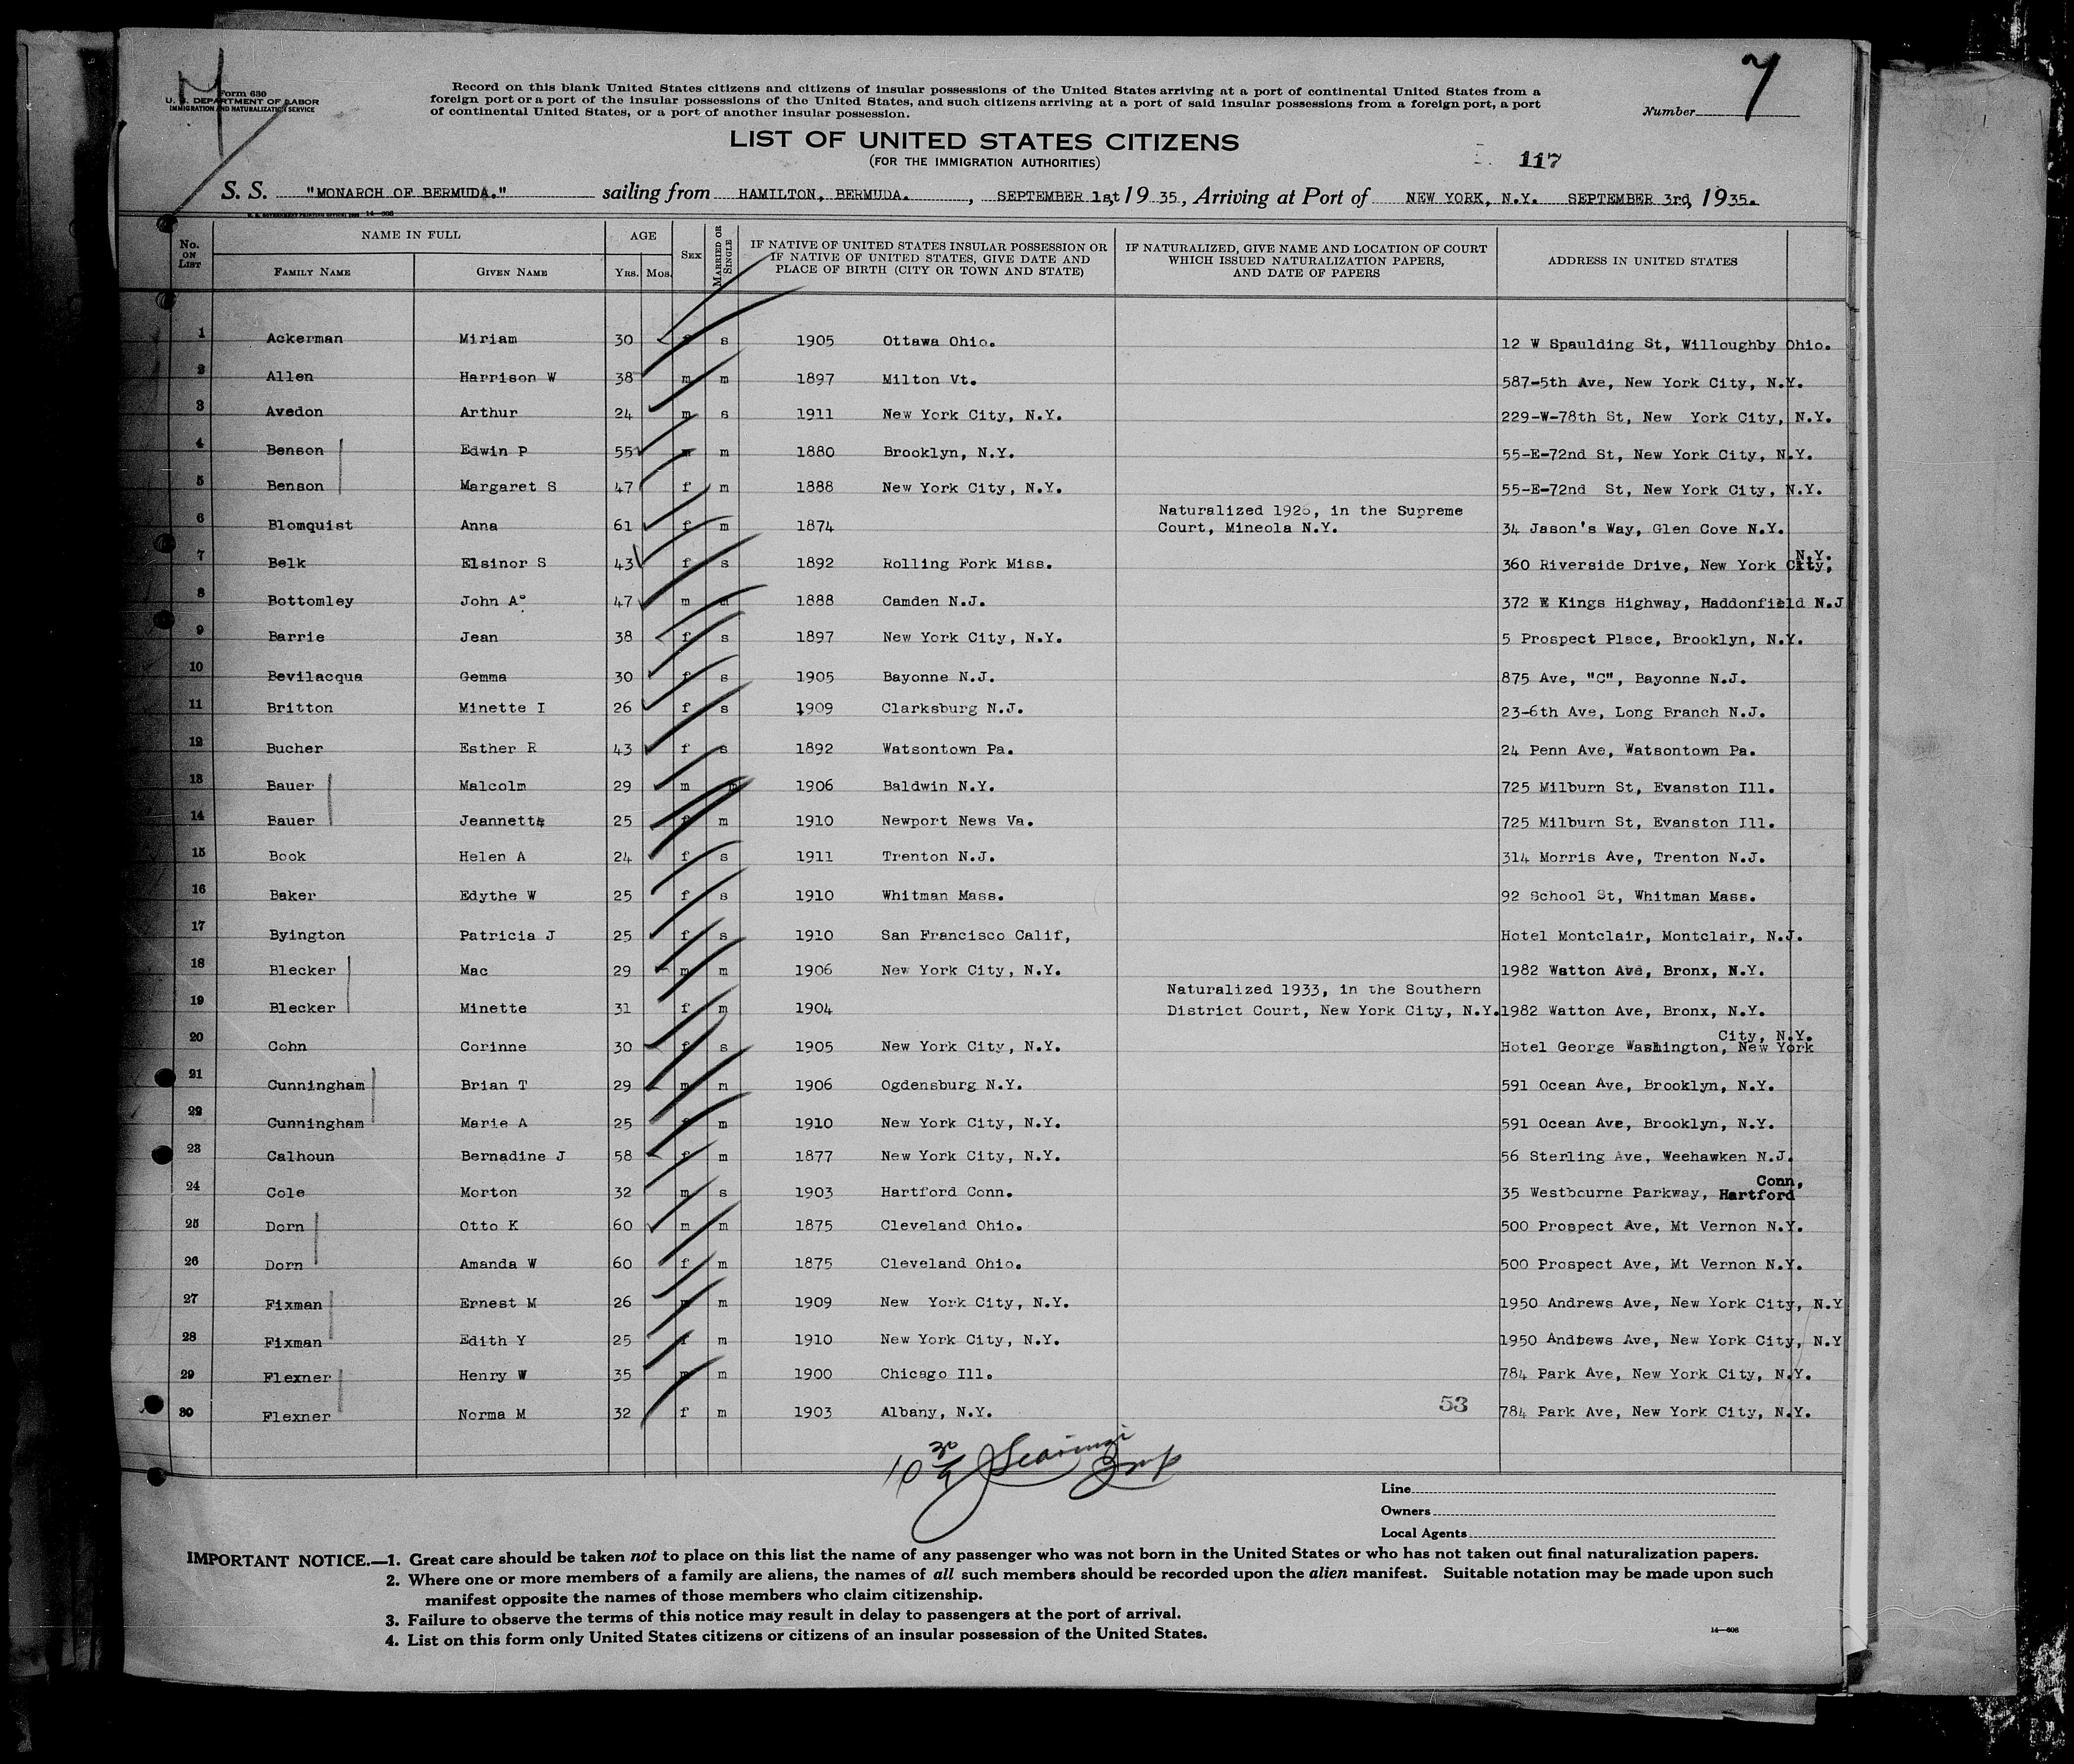 Form 630
U. S. DEPARTMENT OF LABOR
IMMIGRATION AND NATURALIZATION SERVICE
Record on this blank United States citizens and citizens of insular possessions of the United States arriving at a port of continental United States from a
foreign port or a port of the insular possessions of the United States, and such citizens arriving at a port of said insular possessions from a foreign port, a port
of continental United States, or a port of another insular possession.
Number 7
LIST OF UNITED STATES CITIZENS
(FOR THE IMMIGRATION AUTHORITIES)
117
S. S. "MONARCH OF BERMUDA." sailing from HAMILTON, BERMUDA. , SEPTEMBER 1st, 19 35, Arriving at Port of NEW YORK, N.Y. SEPTEMBER 3rd, 1935.
No. ON LIST
NAME IN FULL
FAMILY NAME GIVEN NAME
AGE
YRS. MOS.
SEX
MARRIED OR SINGLE
IF NATIVE OF UNITED STATES INSULAR POSSESSION OR
IF NATIVE OF UNITED STATES, GIVE DATE AND
PLACE OF BIRTH (CITY OR TOWN AND STATE)
IF NATURALIZED, GIVE NAME AND LOCATION OF COURT
WHICH ISSUED NATURALIZATION PAPERS,
AND DATE OF PAPERS
ADDRESS IN UNITED STATES
1 Ackerman Miriam 30 s 1905 Ottawa Ohio. 12 W Spaulding St, Willoughby Ohio.
2 Allen Harrison W 38 m m 1897 Milton Vt. 587-5th Ave, New York City, N.Y.
3 Avedon Arthur 24 m s 1911 New York City, N.Y. 229-W-78th St, New York City, N.Y.
4 Benson Edwin P 55 m m 1880 Brooklyn, N.Y. 55-E-72nd St, New York City, N.Y.
5 Benson Margaret S 47 f m 1888 New York City, N.Y. 55-E-72nd St, New York City, N.Y.
6 Blomquist Anna 61 f m 1874 Naturalized 1926, in the Supreme
Court, Mineola N.Y. 34 Jason's Way, Glen Cove N.Y.
7 Belk Elsinor S 43 f s 1892 Rolling Fork Miss. 360 Riverside Drive, New York City, N.Y.
8 Bottomley John A. 47 m m 1888 Camden N.J. 372 E Kings Highway, Haddonfield N.J
9 Barrie Jean 38 f s 1897 New York City, N.Y. 5 Prospect Place, Brooklyn, N.Y.
10 Bevilacqua Gemma 30 f s 1905 Bayonne N.J. 875 Ave, "C", Bayonne N.J.
11 Britton Minette I 26 f s 1909 Clarksburg N.J. 23-6th Ave, Long Branch N.J.
12 Bucher Esther R 43 f s 1892 Watsontown Pa. 24 Penn Ave, Watsontown Pa.
13 Bauer Malcolm 29 m m 1906 Baldwin N.Y. 725 Milburn St, Evanston Ill.
14 Bauer Jeannette 25 f m 1910 Newport News Va. 725 Milburn St, Evanston Ill.
15 Book Helen A 24 f s 1911 Trenton N.J. 314 Morris Ave, Trenton N.J.
16 Baker Edythe W 25 f s 1910 Whitman Mass. 92 School St, Whitman Mass.
17 Byington Patricia J 25 f s 1910 San Francisco Calif, Hotel Montclair, Montclair, N.J.
18 Blecker Mac 29 m m 1906 New York City, N.Y. 1982 Watton Ave, Bronx, N.Y.
19 Blecker Minette 31 f m 1904 Naturalized 1933, in the Southern
District Court, New York City, N.Y. 1982 Watton Ave, Bronx, N.Y.
20 Cohn Corinne 30 f s 1905 New York City, N.Y. Hotel George Washington, New York City, N.Y.
21 Cunningham Brian T 29 m m 1906 Ogdensburg N.Y. 591 Ocean Ave, Brooklyn, N.Y.
22 Cunningham Marie A 25 f m 1910 New York City, N.Y. 591 Ocean Ave, Brooklyn, N.Y.
23 Calhoun Bernadine J 58 f m 1877 New York City, N.Y. 56 Sterling Ave, Weehawken N.J.
24 Cole Morton 32 m s 1903 Hartford Conn. 35 Westbourne Parkway, Hartford Conn,
25 Dorn Otto K 60 m m 1875 Cleveland Ohio. 500 Prospect Ave, Mt Vernon N.Y.
26 Dorn Amanda W 60 f m 1875 Cleveland Ohio. 500 Prospect Ave, Mt Vernon N.Y.
27 Fixman Ernest M 26 m m 1909 New York City, N.Y. 1950 Andrews Ave, New York City, N.Y
28 Fixman Edith Y 25 f m 1910 New York City, N.Y. 1950 Andrews Ave, New York City, N.Y
29 Flexner Henry W 35 m m 1900 Chicago Ill. 784 Park Ave, New York City, N.Y.
30 Flexner Norma M 32 f m 1903 Albany, N.Y. 784 Park Ave, New York City, N.Y.
53
Line
Owners
Local Agents
IMPORTANT NOTICE.—1. Great care should be taken not to place on this list the name of any passenger who was not born in the United States or who has not taken out final naturalization papers.
2. Where one or more members of a family are aliens, the names of all such members should be recorded upon the alien manifest. Suitable notation may be made upon such
manifest opposite the names of those members who claim citizenship.
3. Failure to observe the terms of this notice may result in delay to passengers at the port of arrival.
4. List on this form only United States citizens or citizens of an insular possession of the United States.
14—606